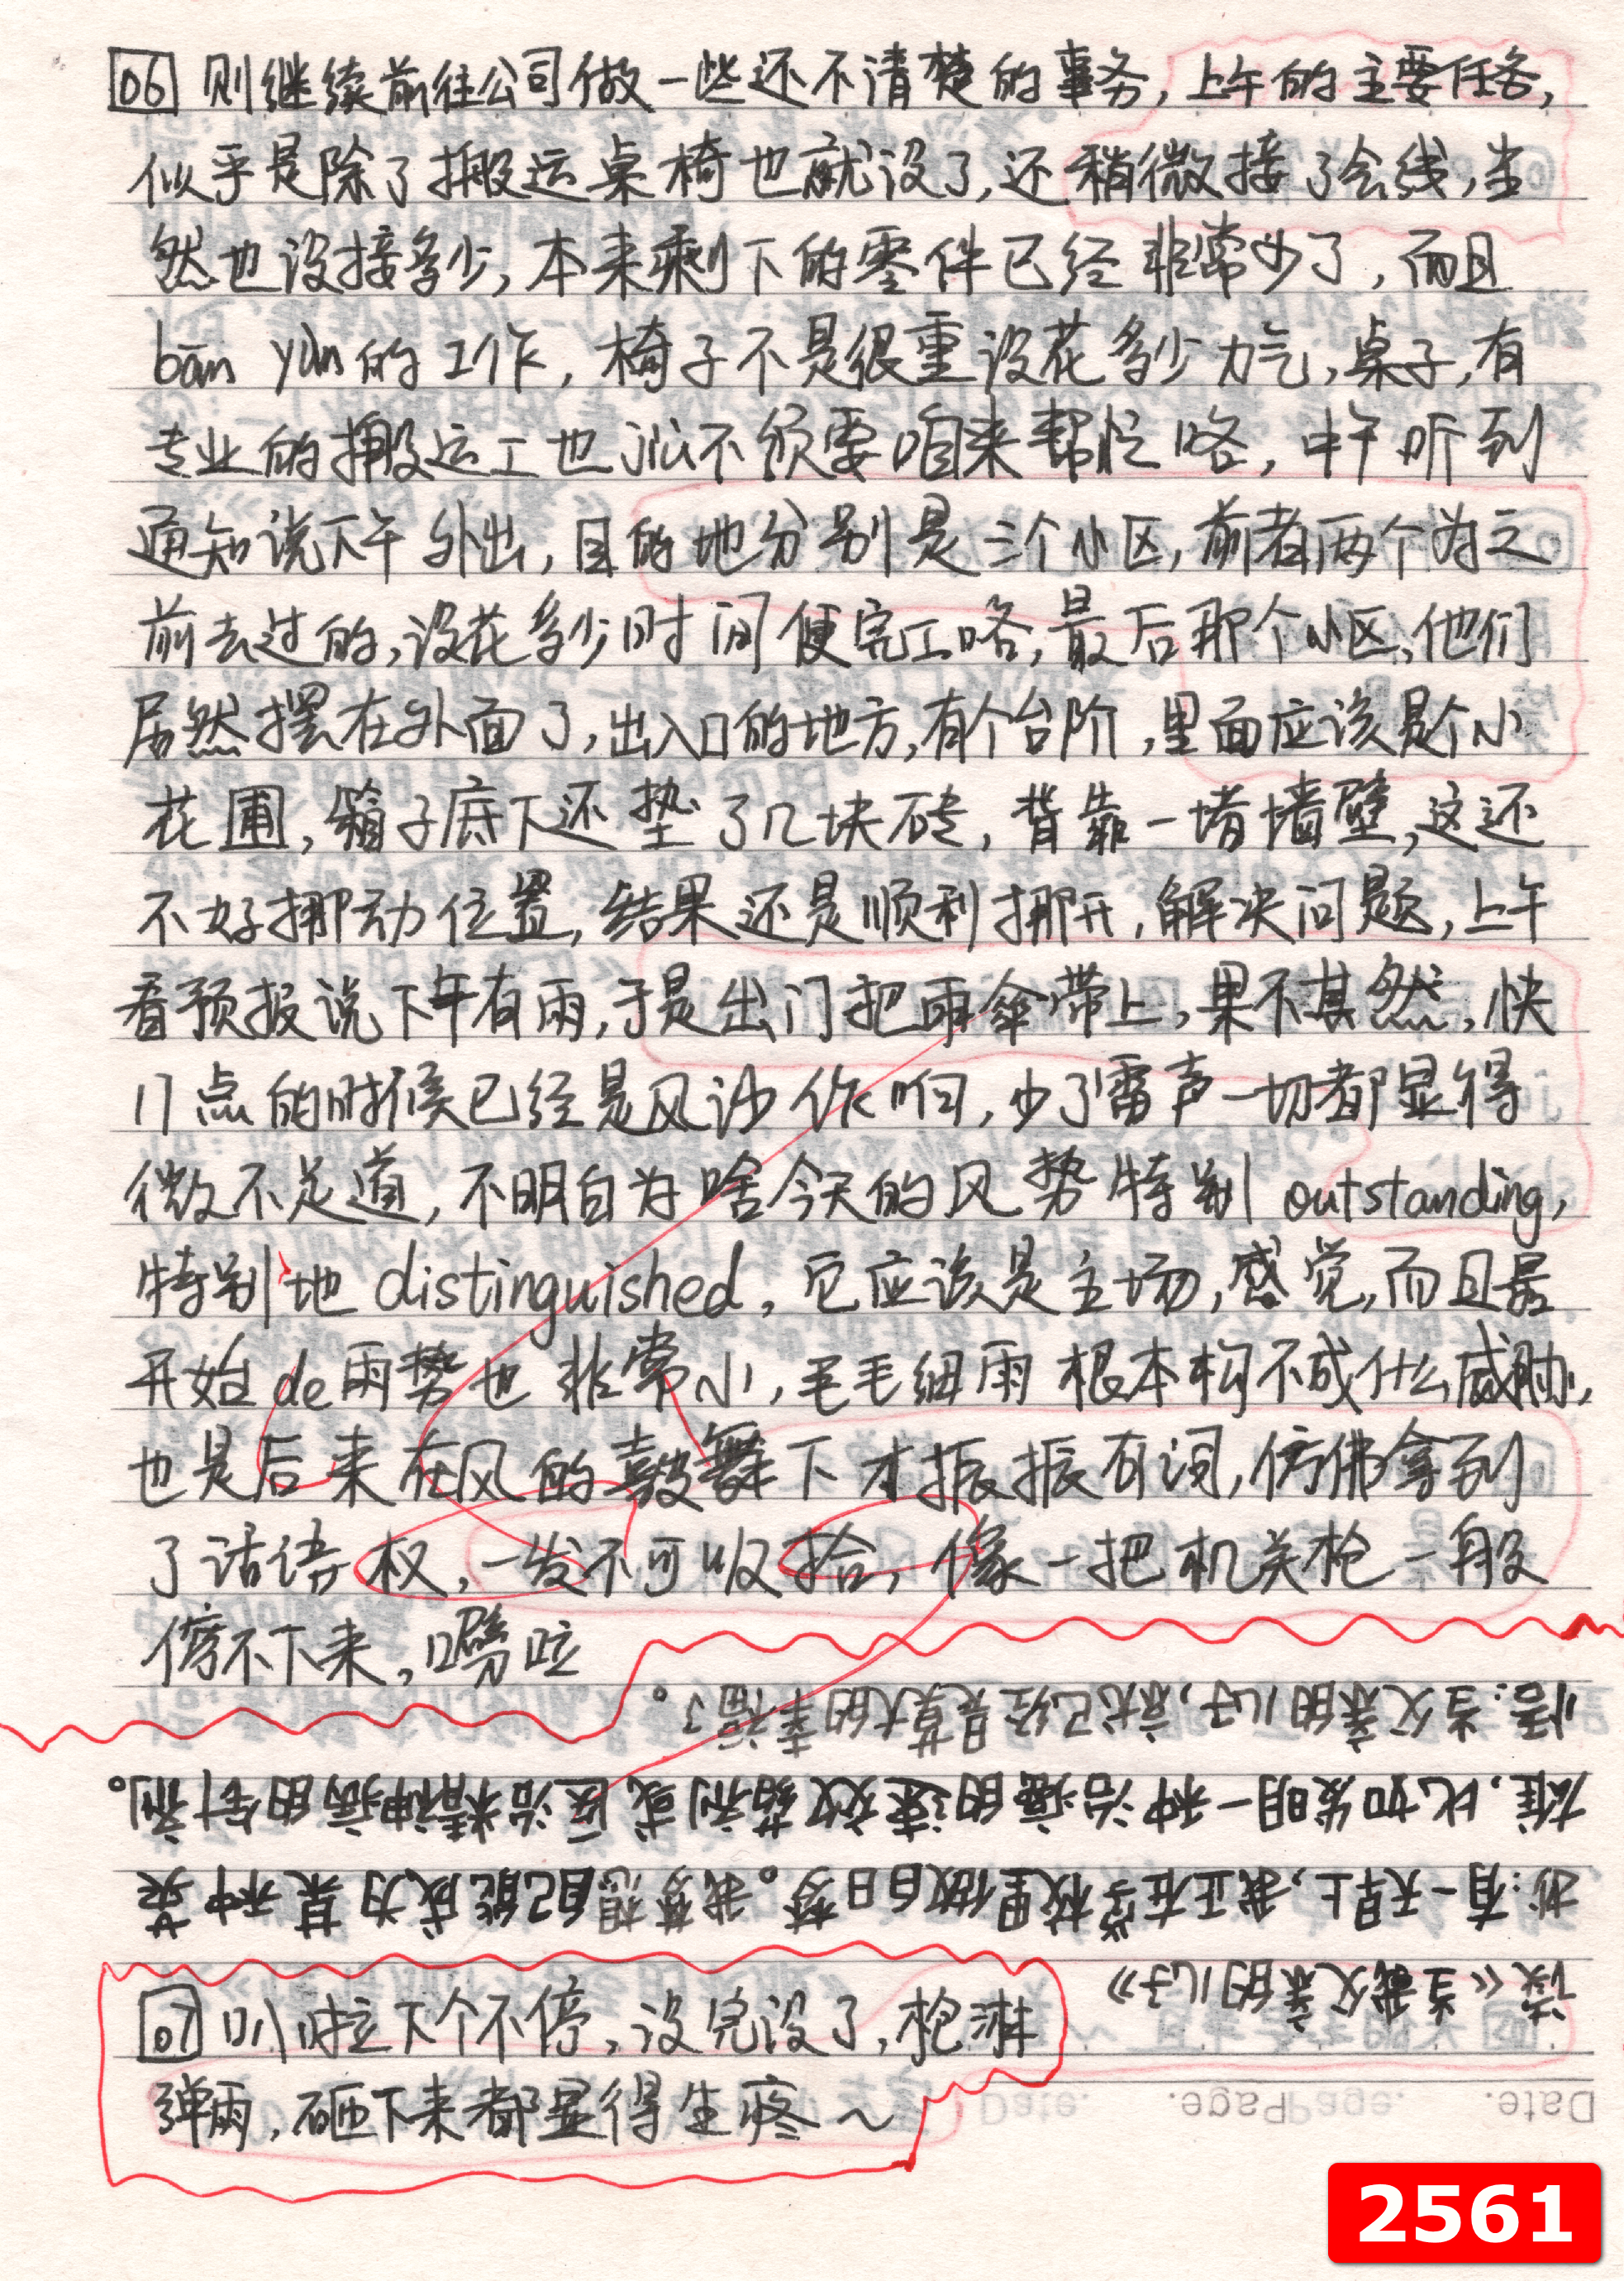 06 则继续前往公司做一些还不清楚的事务,上午的主要任务,
似乎是除了搬运桌椅也就没了,还稍微接了会线,当
然也没接多少,本来剩下的零件已经非常少了,而且
bān yùn的工作,椅子不是很重没花多少力气,桌子,有
专业的搬运工也jiù不须要咱来帮忙咯,中午听到
通知说下午外出,目的地分别是三个小区,前者两个为之
前去过的,没花多少时间便完工咯,最后那个小区,他们
居然摆在外面了,出入口的地方,有个台阶,里面应该是个小
花圃,箱子底下还垫了几块砖,背靠一堵墙壁,这还
不好挪动位置,结果还是顺利挪开,解决问题,上午
看预报说下午有雨,于是出门把雨伞带上,果不其然,快
11点的时候已经是风沙作响,少了雷声一切都显得
微不足道,不明白为啥今天的风势特别outstanding,
特别地distinguished,它应该是主场,感觉,而且最
开始de雨势也非常小,毛毛细雨根本构不成什么威胁,
也是后来在风的鼓舞下才振振有词,仿佛拿到
了话语权,一发不可收拾,像一把机关枪一般
停不下来,噼啦
悟:当父亲的儿子,就已经是莫大的幸福了。
雄,比如发明一种治癌的速效药剂或医治精神病的针剂。
抄:有一天早上,我正在学校里做白日梦。我梦想自己能成为某种英
读《当我父亲的儿子》
07 叭啦下个不停,没完没了,枪淋
弹雨,砸下来都显得生疼~
Date. Page.
Page. Date.
2561